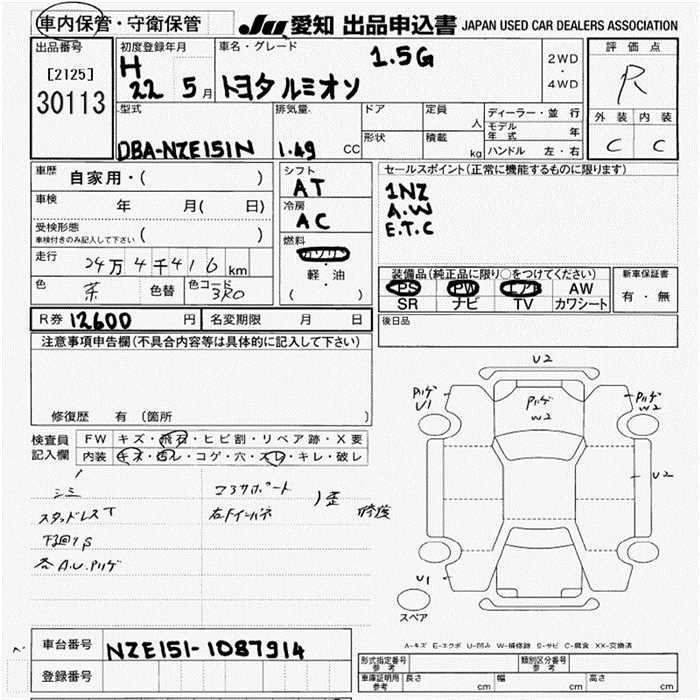 車内保管・守衛保管
JU 愛知 出品申込書 JAPAN USED CAR DEALERS ASSOCIATION
出品番号
[2125]
30113
初度登録年月
H 22 5月
車名・グレード
1.5G
トヨタ ルミオン
2WD
・
4WD
評価点
R
外装 内装
C C
型式
DBA-NZE151N
排気量
1.49 CC
ドア
形状
定員
人
積載
kg
ディーラー・並行
モデル年式 年
ハンドル 左・右
車歴 自家用・( )
車検 年 月( 日)
受検形態
車検付きのみ記入して下さい ( )
走行 24万4千416km
色 茶 色替 色コード 3R0
シフト
AT
冷房
AC
燃料
ガソリン
・
軽油
( )
セールスポイント(正常に機能するものに限ります)
1NZ
A.W
E.T.C
装備品(純正品に限り○をつけてください)
PS PW エアB AW
SR ナビ TV カワシート
新車保証書
有・無
R券 12600 円 名変期限 月 日
後日品
注意事項申告欄(不具合内容等は具体的に記入して下さい)
修復歴 有(箇所 )
検査員記入欄
FW キズ・飛石・ヒビ割・リペア跡・X要
内装 キズ・汚レ・コゲ・穴・スレ・キレ・破レ
シミ
スタッドレスT
下回りS
各A.U.Pハゲ
コアサポート
右Fインパネ
)歪 修復
U2
Pハゲ
U1
Pハゲ
W2
Pハゲ
W2
U2
U1
スペア
A-キズ E-エクボ U-凹み W-補修跡 S-サビ C-腐食 XX-交換済
車台番号 NZE151-1087914
登録番号
型式指定番号 参考
類別区分番号 参考
車庫証明用 参考 長さ cm 幅 cm 高さ cm